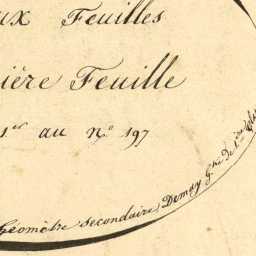 ux Feuilles
ière Feuille
1er au no 197
Géomètre secondaire, Demay Gtre de 1ère